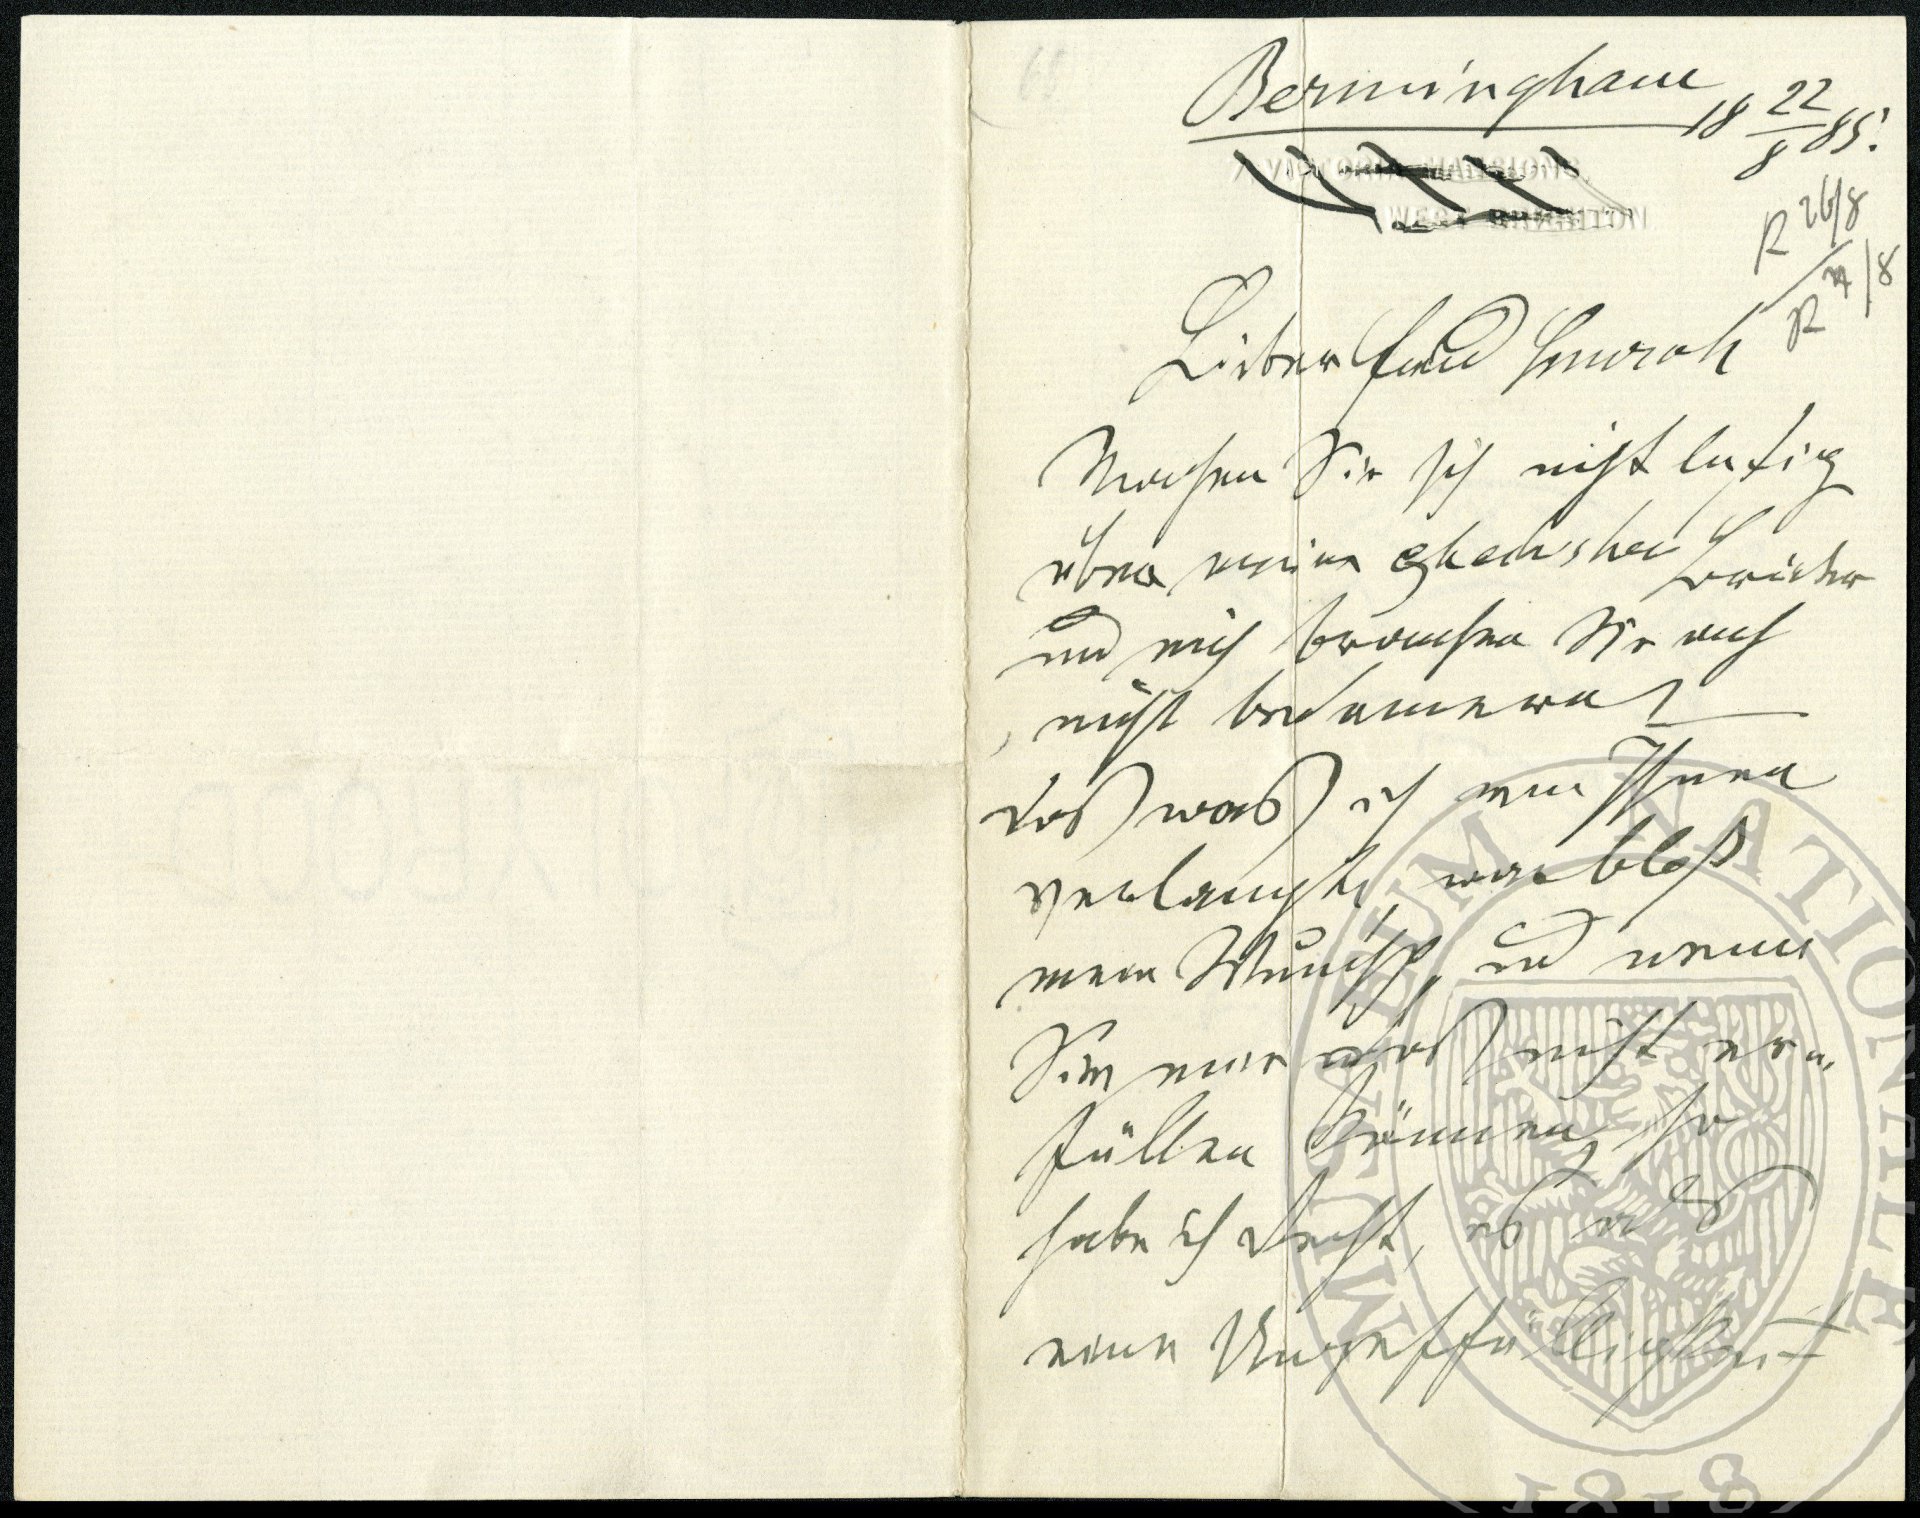 Bermingham
18 22/8 85.
VICTORIA MANSIONS,
WEST BRIGHTON
R 26/8
R /8
Lieber Freund Simrock
Machen Sie sich nicht lustig
über meine Brüder
und mich brauchen Sie auch
nicht bedauern!
das was ich von Ihnen
verlangte, war bloß
mein Wunsch, und wenn
Sie mir das nicht er-
füllen können, so
habe ich Recht, es als
eine Ungeffälligkeit
MUSEUM NATIONALE
1818